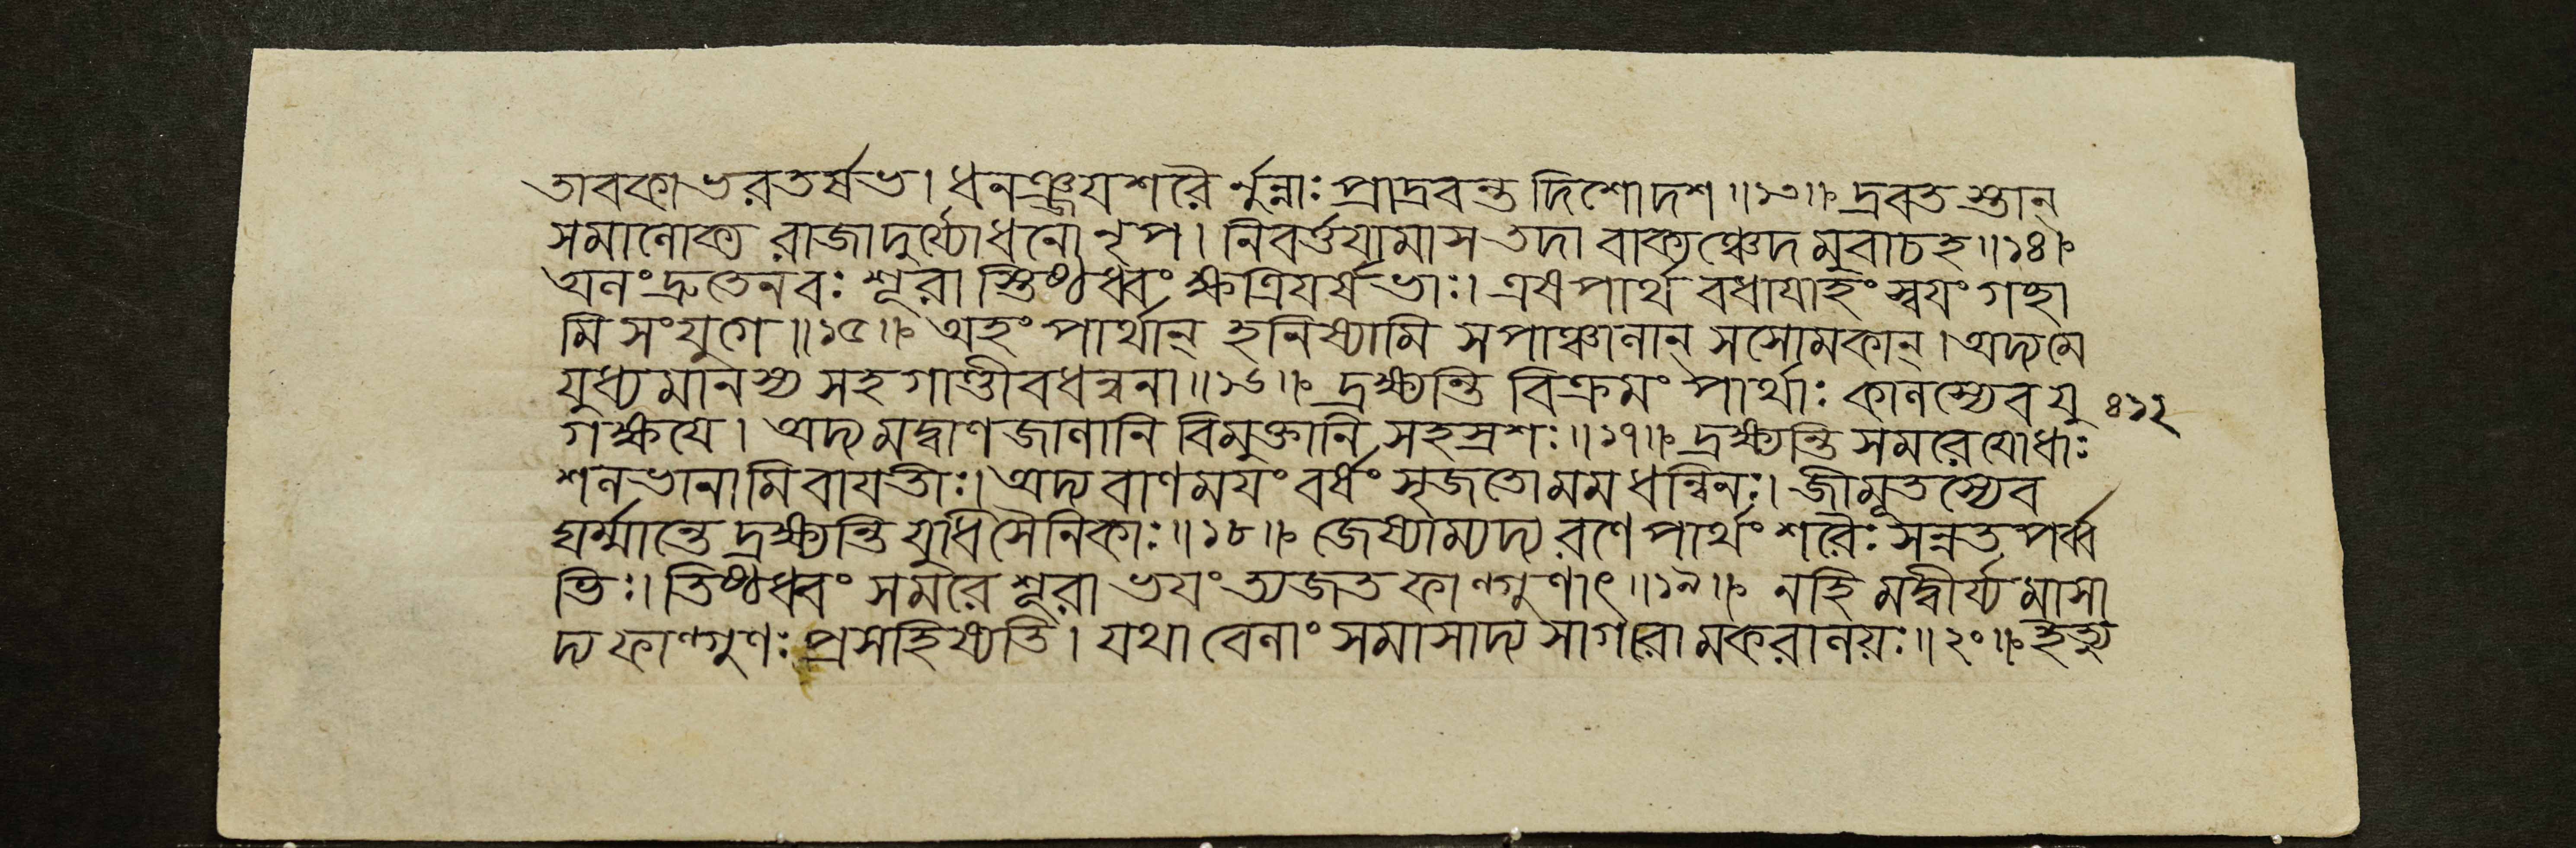 তাবকা ভরতর্ষভ। ধনঞ্জয শরৈ র্নুন্নাঃ প্রাদ্রবন্ত দিশোদশ॥১৩॥ দ্রবত স্তান্
সমালোক্য রাজাদুর্য্যোধনো নৃপ। নিবর্ত্তযামাস তদা বাক্যঞ্চেদ মুবাচহ॥১৪॥
অলংদ্রুতেনবঃ শূরা স্তিষ্ঠধ্বং ক্ষত্রিযর্ষভাঃ। এষপার্থ বধাযাহং স্বযং গছা
মি সংযুগে॥১৫॥ অহং পার্থান্ হনিষ্যামি সপাঞ্চালান্ সসোমকান্। অদ্যমে
যুধ্যমানস্য সহগাণ্ডীবধন্বনা॥১৬॥ দ্রক্ষ্যন্তি বিক্রমং পার্থাঃ কালস্যেব যু ৪১২
গক্ষযে। অদ্যমদ্বাণজালানি বিমুক্তানি সহস্রশঃ॥১৭॥ দ্রক্ষ্যন্তি সমরেযোধাঃ
শলভানামিবাযতীঃ। অদ্য বাণমযং বর্ষং সৃজতোমমধন্বিনঃ। জীমূতস্যেব
ঘর্ম্মান্তে দ্রক্ষ্যন্তি যুধিসৈনিকাঃ॥১৮॥ জেষ্যাম্যদ্য রণে পার্থং শরৈঃ সন্নতপর্ব্ব
ভিঃ। তিষ্ঠধ্বং সমরে শূরা ভযং ত্যজত ফাল্গুণাৎ॥১৯॥ নহি মদ্বীর্য্য মাসা
দ্য ফাল্গুণঃ প্রসহিষ্যতি। যথা বেলাং সমাসাদ্য সাগরো মকরালয়ঃ॥২০॥ ইত্যু